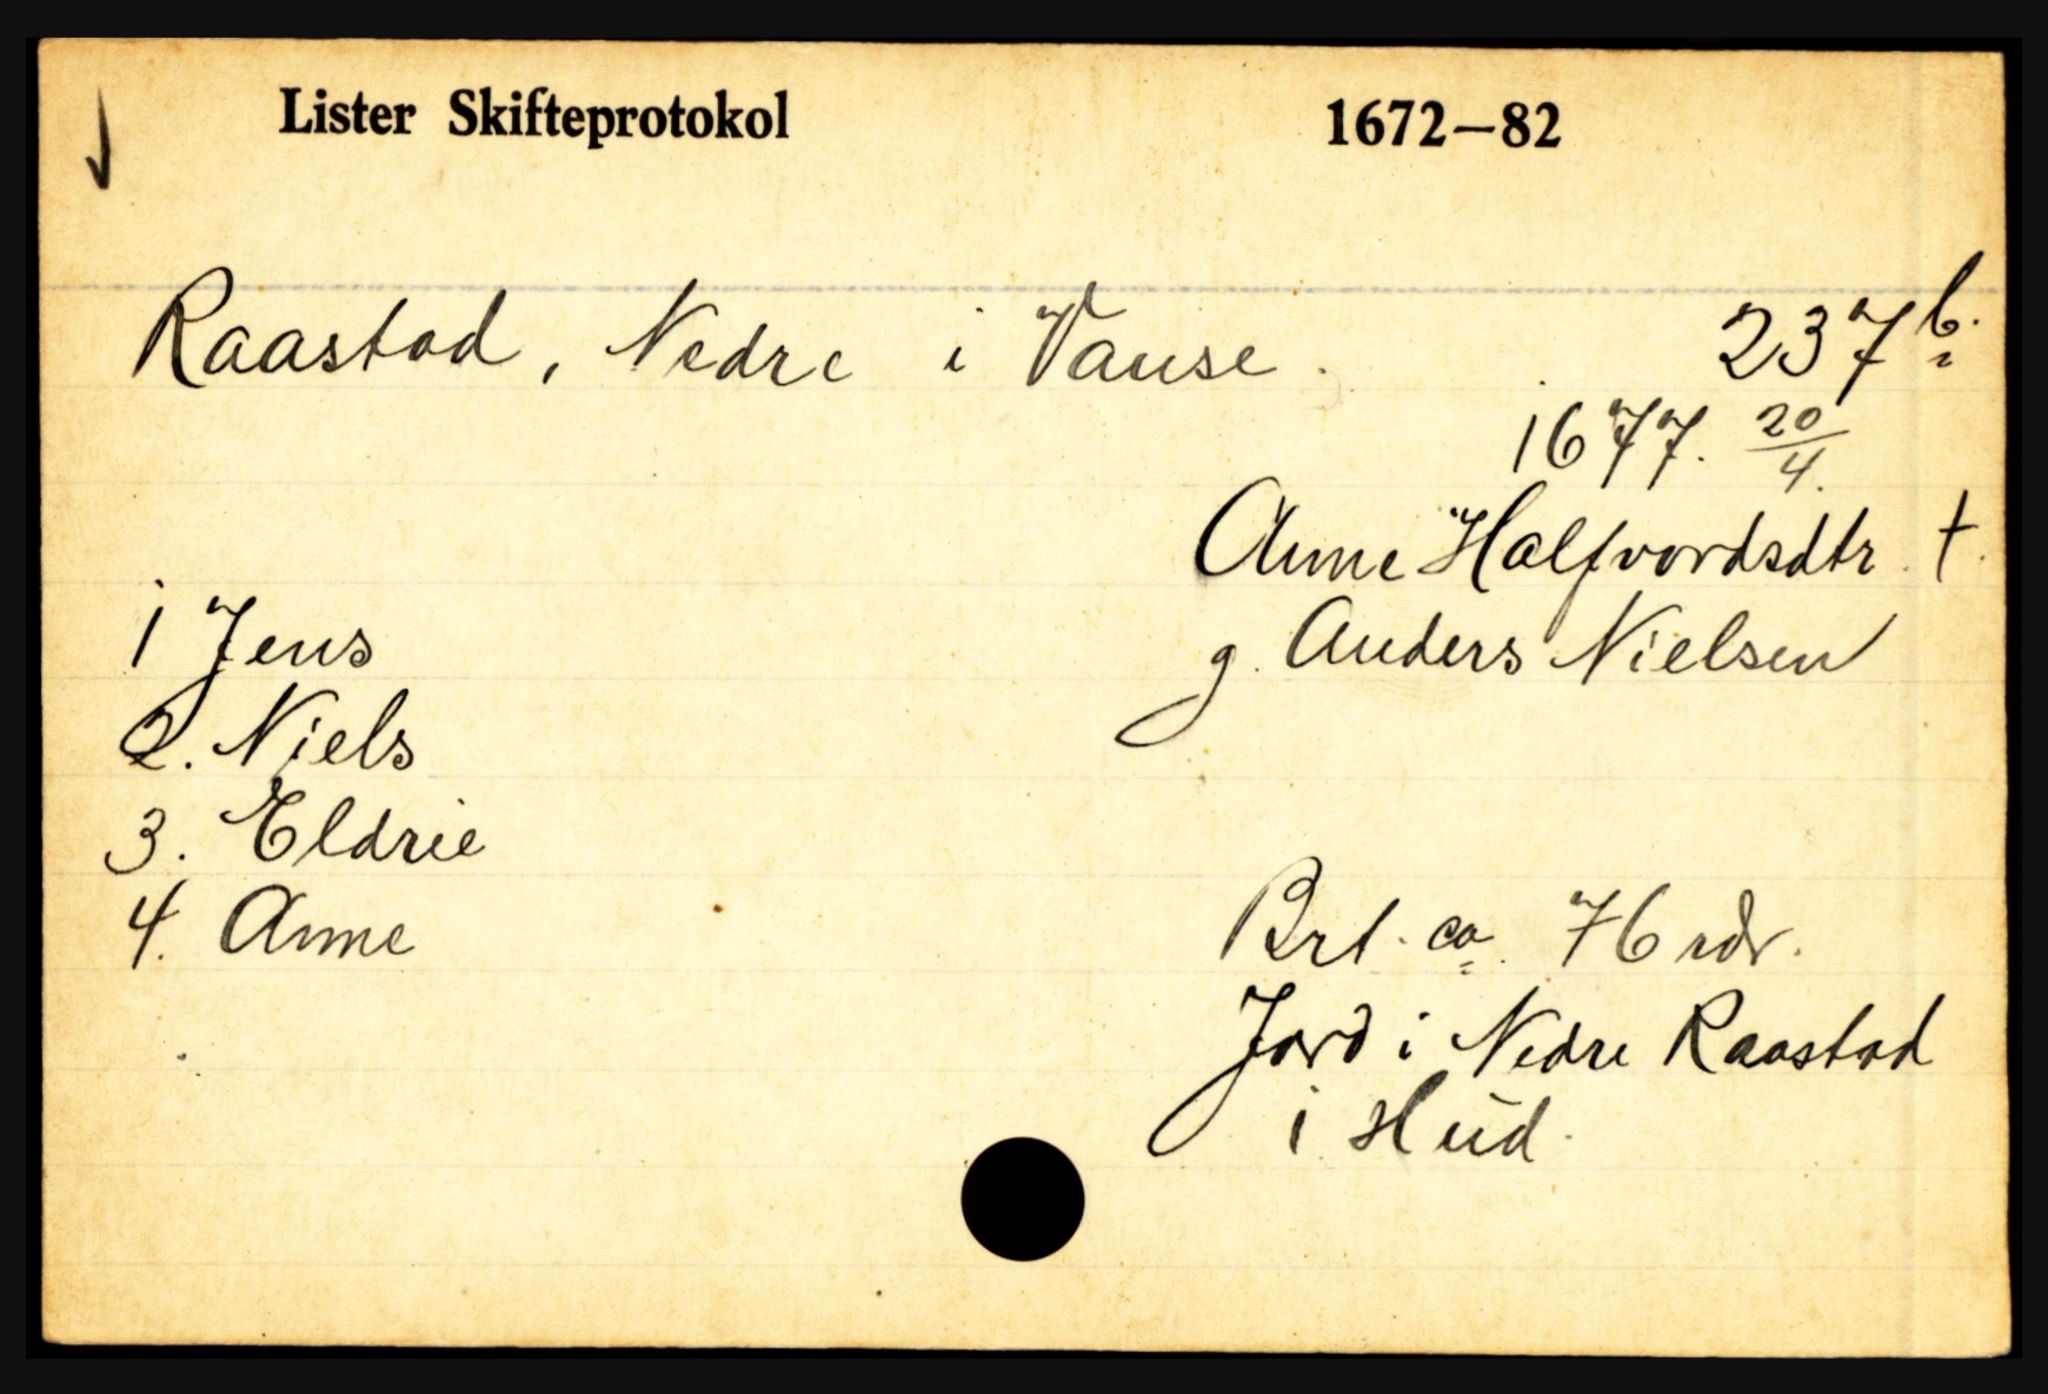 Lister Skifteprotokol 1672–82
Raastad, Nedre i Vanse. 237 b.
1677. 20/4.
Anne Halfvordsdtr. †.
g. Anders Nielsen
1 Jens
2. Niels
3. Eldrie
4. Anne
Brt. ca. 76 rdr.
Jord i Nedre Raastad
i Hud.